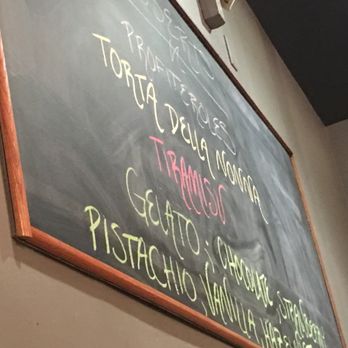 PROFITEROLES
TORTA DELLA NONNA
TIRAMISU
GELATO: CHOCOLATE STRAWBERRY
PISTACHIO VANILLA HAZELNUT